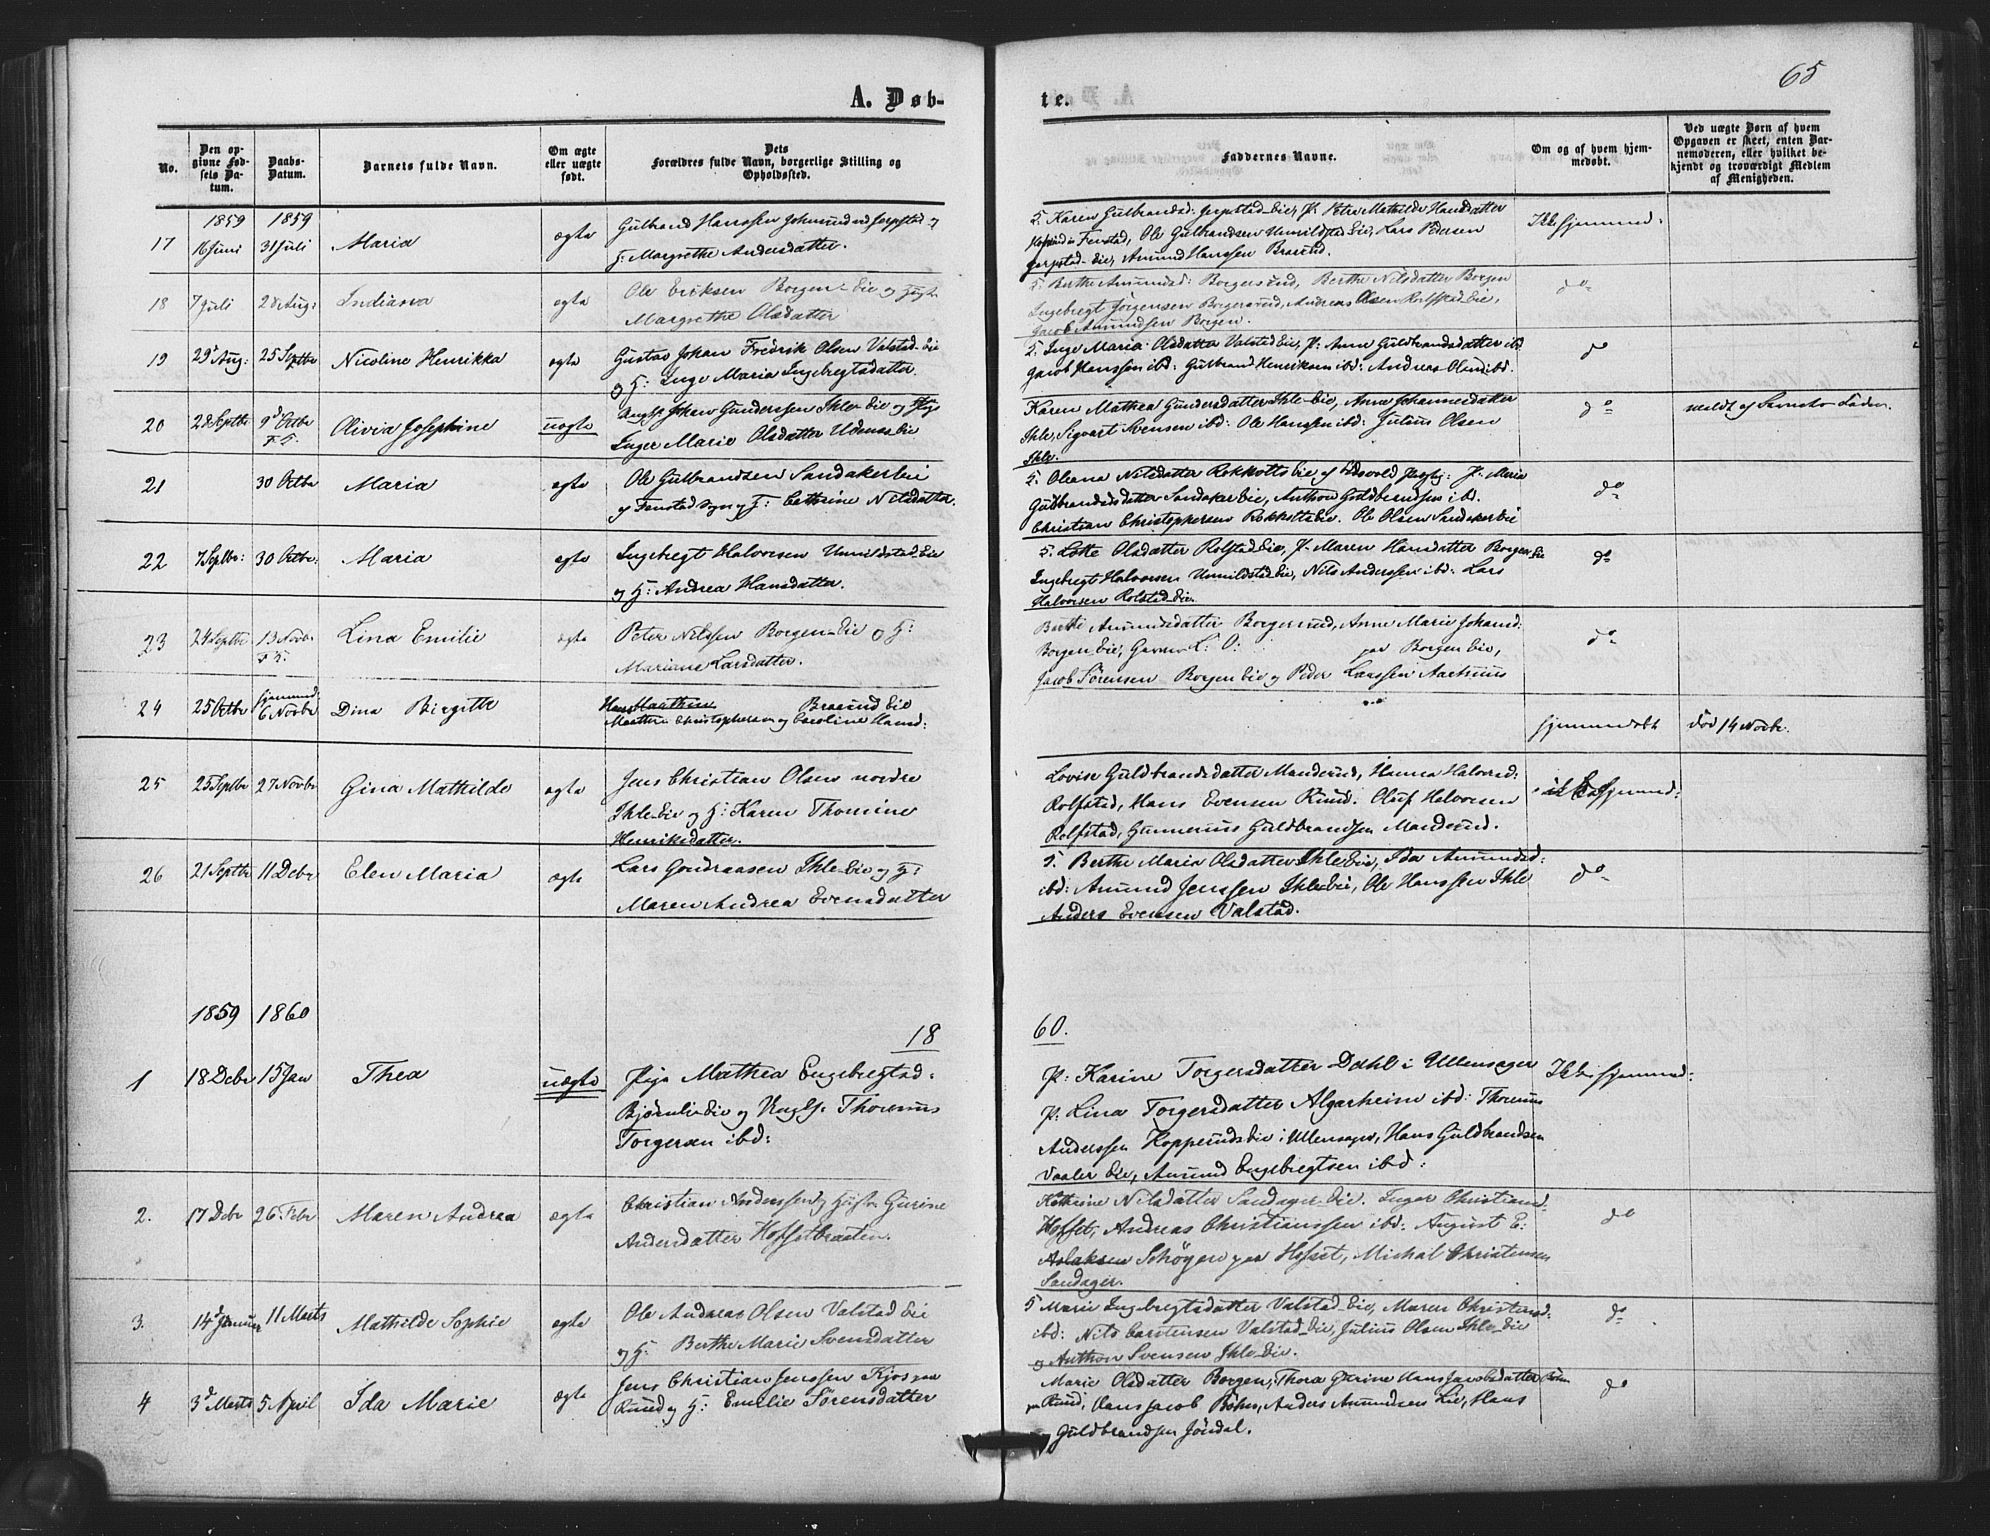 65
A. Døb-
te.
No.
Den opgivne Fødsels Datum.
Daabs-Datum.
Barnets fulde Navn.
Om ægte eller uægte født.
Dets Forældres fulde Navn, borgerlige Stilling og Opholdssted.
Faddernes Navne.
Om og af hvem hjemmedøbt.
Ved uægte Børn af hvem Opgaven er skeet, enten Barnemoderen, eller hvilket bekjendt og troværdigt Medlem af Menigheden.
1859 1859
17 16 Juni 31 Juli Maria ægte Gulbrand Hanssen
H: Margrethe Andersdatter.
S: Karen Gulbrandsd: Petra Mathilde Hansdatter
Ole Gulbrandsen Lars Pedersen
Amund Hanssen Braarud.
18 7 Juli 28 Aug: ægte Ole Eriksen Borgen-Eie og
Margrethe Olsdatter
S: Berthe Amundsd: Borgersrud, Berthe Nilsdatter Borgen
Ingebregt Jørgensen Borgersrud, Andreas Olsen Rolfstad-Eie,
Jacob Amundsen Borgen.
do
19 29 Aug: 25 Septbr Nicoline Henrikka ægte Gustav Johan Fredrik Olsen Valstad-Eie
og H: Inge Maria Ingebregtsdatter.
S: Inge Maria Olsdatter Valstad Eie, P: Anne Guldbrandsdatter ibd
Jacob Hanssen ibd: Gulbrand Henriksen ibd: Andreas Olsen ibd.
do
20 28 Septbr 9d Octbr Olivia Josephine uægte Ungk. Johan Gunderssen Ihle-Eie og Pige
Inger Marie Olsdatter Udenæs Eie
Karen Mathea Gundersdatter Ihle-Eie, Anne Johannesdatter
Ihle, Sigvart Svensen ibd: Ole Hanssen ibd: Julius Olsen
Ihle.
do
meldt af Barnets Fader.
21 30 Octbr Maria ægte Ole Gulbrandsen Sandaker Eie
af Fenstad Sogn og H: Cathrine Nilsdatter.
S: Oleana Nilsdatter Rokholts Eie af Eidsvold P: Maria
Guldbrandsdatter Sandaker Eie, Anthon Guldbrandsen ibd.
Christian Christophersen Rokholts Eie. Ole Olsen Sandaker Eie
do
22 7 Septbr: 30 Octbr: Maria ægte Ingebregt Halvorsen Unnildstad Eie
og H: Andrea Hansdatter.
S: Lotte Olsdatter Rolfstad Eie, P. Maren Hansdatter Borgen Eie
Ingebregt Halvorsen Unnildstad Eie, Nils Anderssen ibd: Lars
Halvorsen Rolstad-Eie.
do
23 24 Septbr 13 Novbr Lina Emilie ægte Peter Nilssen Borgen-Eie og H:
Mariane Larsdatter.
Berthe Amundsdatter Borgersrud, Anne Marie Johansd:
Borgen Eie, L: O: paa Borgen Eie,
Jacob Sørensen Borgen Eie og Peder Larssen
do
24 25 Octbr hjemmed: 6 Novbr Dina Birgitte Braarud Eie
Christophersen og Caroline Hansd:
hjemmedøbt død 14 Novbr.
25 25 Septbr 27 Novbr Gina Mathilde ægte Jens Christian Olsen nordre
Ihle-Eie og H: Karen Thomine
Henriksdatter.
Lovise Guldbrandsdatter Manderud, Hanna Halvorsd:
Rolfstad, Hans Evensen Ruud. Oluf Halvorsen
Rolfstad, Gunnerius Guldbrandsen Manderud.
ikke hjemmed:
26 21 Septbr 11 Debr Elen Maria ægte Lars Gudmassen Ihle-Eie og H:
Maren Andrea Evensdatter
S. Berthe Maria Olsdatter Ihle Eie, Ida Amundsd:
ibd: Amund Jenssen Ihle Eie, Ole Hanssen Ihle
Anders Evensen Valstad.
do
1859 1860
18 60.
1 18 Debr 15 Jan Thea uægte Pige Mathea Engebregtsd.
Bjørnli-Eie og Ungk. Thorinus
Torgersen ibd:
P: Karine Torgersdatter Dahl i Ullensager
P: Lina Torgersdatter Algarheim ibd: Thorinus
Anderssen Kopperuds Eie i Ullensager, Hans Guldbrandsen
Vaaler Eie, Amund Engebregtsen ibd:
Ikke hjemmed:
2. 17 Debr 26 Febr Maren Andrea ægte Christian Anderssen og Gurine
Andersdatter Hofsetbraaten.
Kathrine Nilsdatter Sandager-Eie. Inger Christiansd.
Hofset, Andreas Christianssen ibd: August E:
Aslaksen Schøyen paa Hofset, Michal Christensen
Sandager.
do
3. 14d Januar 11 Marts Mathilde Sophie ægte Ole Andreas Olsen Valstad Eie
og H. Berthe Marie Svensdatter
S Marie Ingebregtsdatter Valstad-Eie, Maren Christensd:
ibd: Nils Carstensen Valstad-Eie, Julius Olsen Ihle-Eie
og Anthon Svensen Ihle-Eie.
do
4 3d Marts 5 April Ida Marie ægte Jens Christian Jenssen Kjos paa
Ruud og H: Emelie Sørensdatter
Marie Olsdatter Borgen, Thora Gurine Hans Jacobsdatter
paa Ruud, Hans Jacob Bøhn, Anders Amundsen Lie, Hans
Guldbrandsen Jøndal.
do